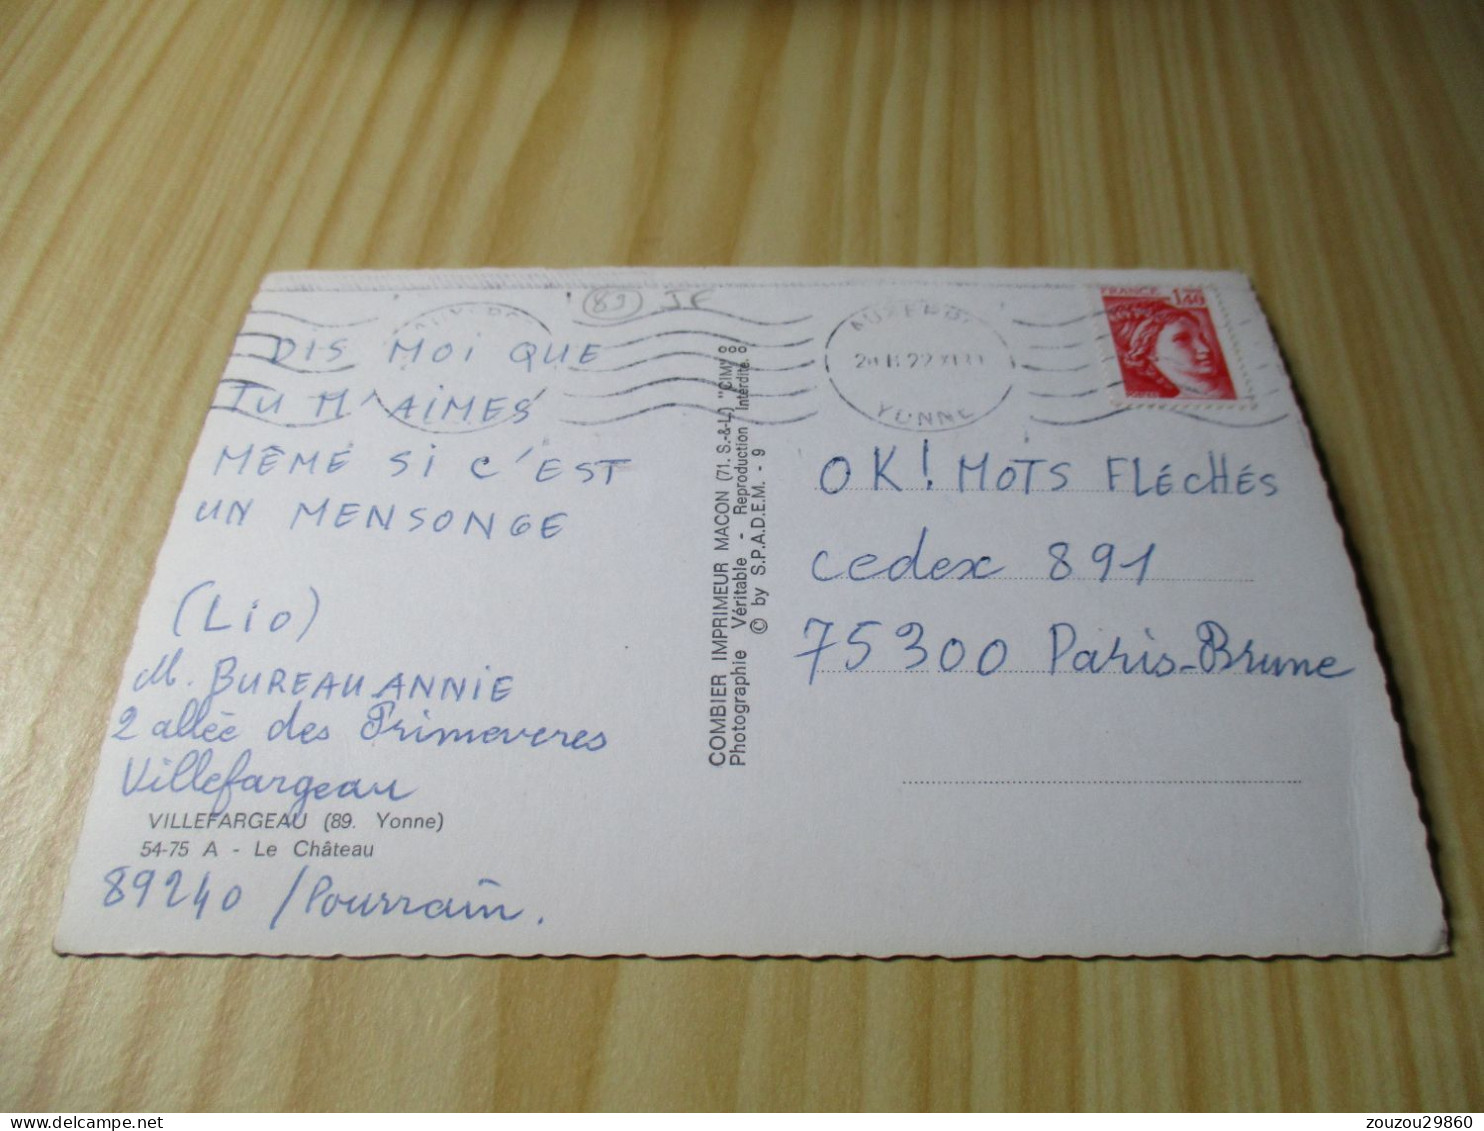 89 JF
FRANCE
1,40
AUXERRE
YONNE
DIS MOI QUE
TU M'AIMES
MÊME SI C'EST
UN MENSONGE
(LIO)
M. BUREAU ANNIE
2 allée des Primeveres
Villefargeau
VILLEFARGEAU (89. Yonne)
54-75 A - Le Château
89240 / Pourrain.
COMBIER IMPRIMEUR MACON (71. S.-&-L.) "CIM"
Photographie Véritable - Reproduction Interdite.
© by S.P.A.D.E.M. - 9
OK! MOTS FLÉCHÉS
cedex 891
75300 Paris-Brune
zouzou29860